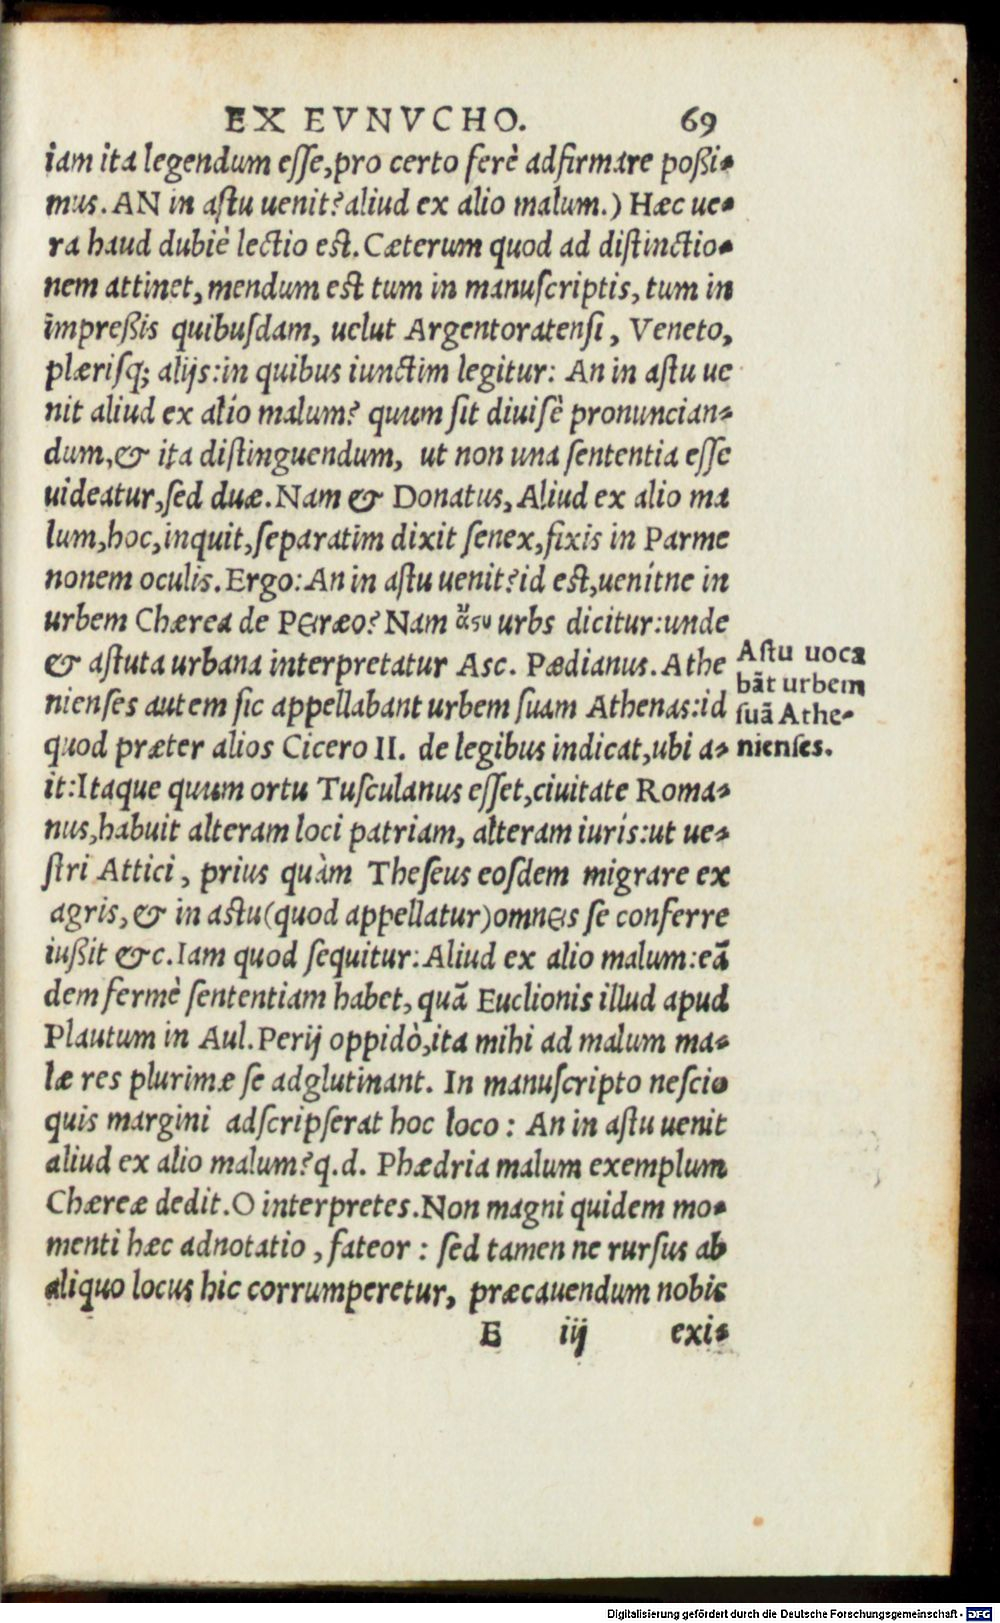 EX EVNVCHO. 69
iam ita legendum esse, pro certo ferè adfirmare poßi-
mus. AN in astu uenit? aliud ex alio malum.) Hæc ue-
ra haud dubiè lectio est. Cæterum quod ad distinctio-
nem attinet, mendum est tum in manuscriptis, tum in
impreßis quibusdam, uelut Argentoratensi, Veneto,
plærisq; alijs: in quibus iunctim legitur: An in astu ue
nit aliud ex alio malum? quum sit diuisè pronuncian-
dum, & ita distinguendum, ut non una sententia esse
uideatur, sed duæ. Nam & Donatus, Aliud ex alio ma
lum, hoc, inquit, separatim dixit senex, fixis in Parme
nonem oculis. Ergo: An in astu uenit? id est, uenítne in
urbem Chærea de Peiræo? Nam ἄϛυ urbs dicitur: unde
& astuta urbana interpretatur Asc. Pædianus. Athe
nienses autem sic appellabant urbem suam Athenas: id
quod præter alios Cicero II. de legibus indicat, ubi a-
it: Itaque quum ortu Tusculanus esset, ciuitate Roma-
nus, habuit alteram loci patriam, alteram iuris: ut ue-
stri Attici, prius quàm Theseus eosdem migrare ex
agris, & in astu (quod appellatur) omneis se conferre
iußit &c. Iam quod sequitur: Aliud ex alio malum: eã
dem fermè sententiam habet, quã Euclionis illud apud
Plautum in Aul. Perij oppidò, ita mihi ad malum ma-
læ res plurimæ se adglutinant. In manuscripto nescio
quis margini adscripserat hoc loco: An in astu uenit
aliud ex alio malum? q.d. Phædria malum exemplum
Chæreæ dedit. O interpretes. Non magni quidem mo-
menti hæc adnotatio, fateor: sed tamen ne rursus ab
aliquo locus hic corrumperetur, præcauendum nobis
E iij exi-
Astu uoca
bãt urbem
suã Athe-
nienses.
Digitalisierung gefördert durch die Deutsche Forschungsgemeinschaft - DFG